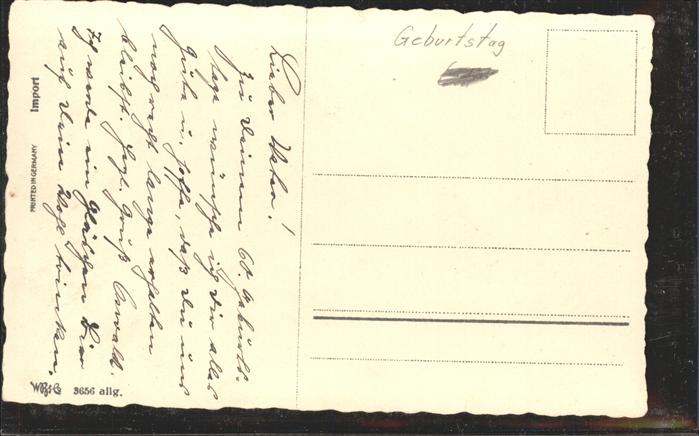 Geburtstag
Lieber Vater!
Zu Deinem 60. Geburts-
tage wünsche ich Dir alles
Gute u. hoffe, daß Du uns
noch recht lange erhalten
bleibst. Herzl. Gruß Oswald.
Ich werde ein Gläschen Bier
auf Dein Wohl trinken.
Import
PRINTED IN GERMANY
3656 allg.